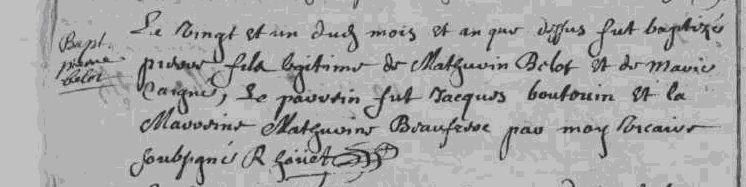 Bapt.
pierre
belot
Le vingt et un dud mois et an que dessus fut baptizé
pierre fils legitime de Mathurin Belot et de Marie
Caigné, Le parrein fut Jacques boutouin et la
Marreine Mathurine Beaufesse par moy vicaire
soubsigné R